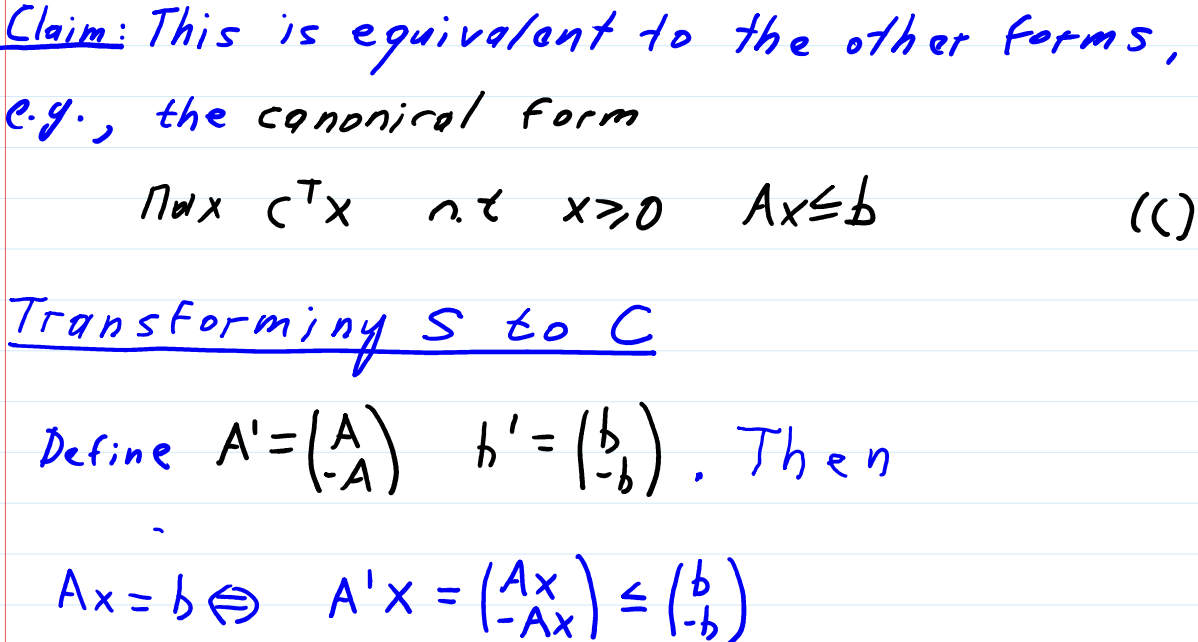 Claim: This is equivalent to the other forms,
e.g., the canonical form
Max cᵀx s.t x≥0 Ax≤b (C)
Transforming S to C
Define A'=(A -A) b'=(b -b). Then
Ax=b⇔ A'x = (Ax -Ax) ≤ (b -b)